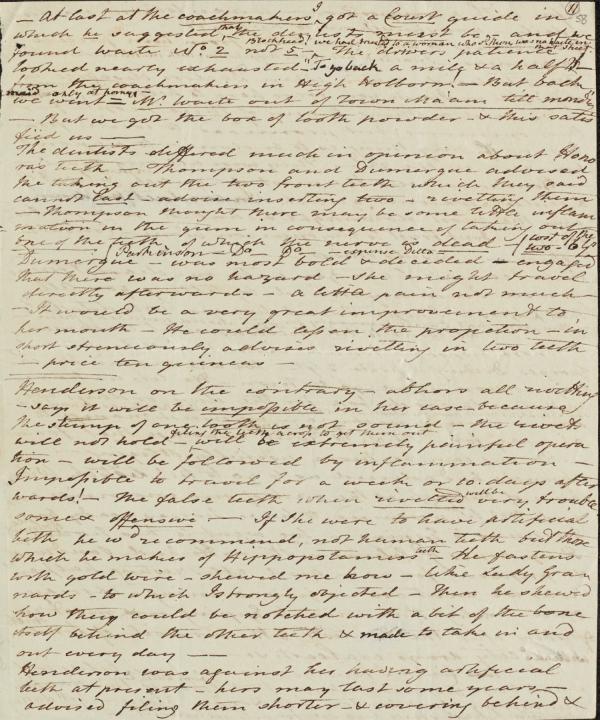 11
58
– At last at the coachmakers I got a Court guide in
which he suggested that the dentists must be – and we
found Waite No. 2 not 5 – The drivers patience
Blockhead, we had trusted to a woman who
looked nearly exhausted – "To go back a mile & a half"
from the coachmakers in High Holborn – But back
maid only at home
we went – Mr. Waite out of town Maam till monday
– But we got the box of tooth powder – & this satis
fied us –
The dentists differed much in opinion about Hono
ra's teeth – Thompson and Dumergue advised
the taking out the two front teeth which they said
cannot last – advise inserting two – rivetting them
– Thompson thought there may be some little inflam
mation in the gum in consequence of taking out
one of the teeth of which the nerve is dead – (cost of the two – 6 Gs
Parkinson – Do Do expense Ditto –
Dumergue – was most bold & decided – engaged
that there was no hazard – she might travel
directly afterwards – a little pain not much
– It would be a very great improvement to
her mouth – He could lessen the projection – in
short strenuously advises rivetting in two teeth
– price ten guineas –
Henderson on the contrary – abhors all rivetting
– says it will be impossible in her case because
the stump of one tooth is not sound – the rivet
filing the teeth across to get them out
will not hold – will be extremely painful opera
tion – will be followed by inflammation –
Impossible to travel for a week or 10 days after
wards! – The false teeth when rivetted will be very trouble
some & offensive – If she were to have artificial
teeth he wd recommend, not human teeth but those
which he makes of Hippopotamus teeth – He fastens
with gold wire – shewed me how – like Lady Gra
nards – to which I strongly objected – Then he shewed
how they could be notched with a bit of the bone
itself behind the other teeth & made to take in and
out every day –
Henderson was against her having artificial
teeth at present – hers may last some years –
advised filing them shorter – & covering behind &